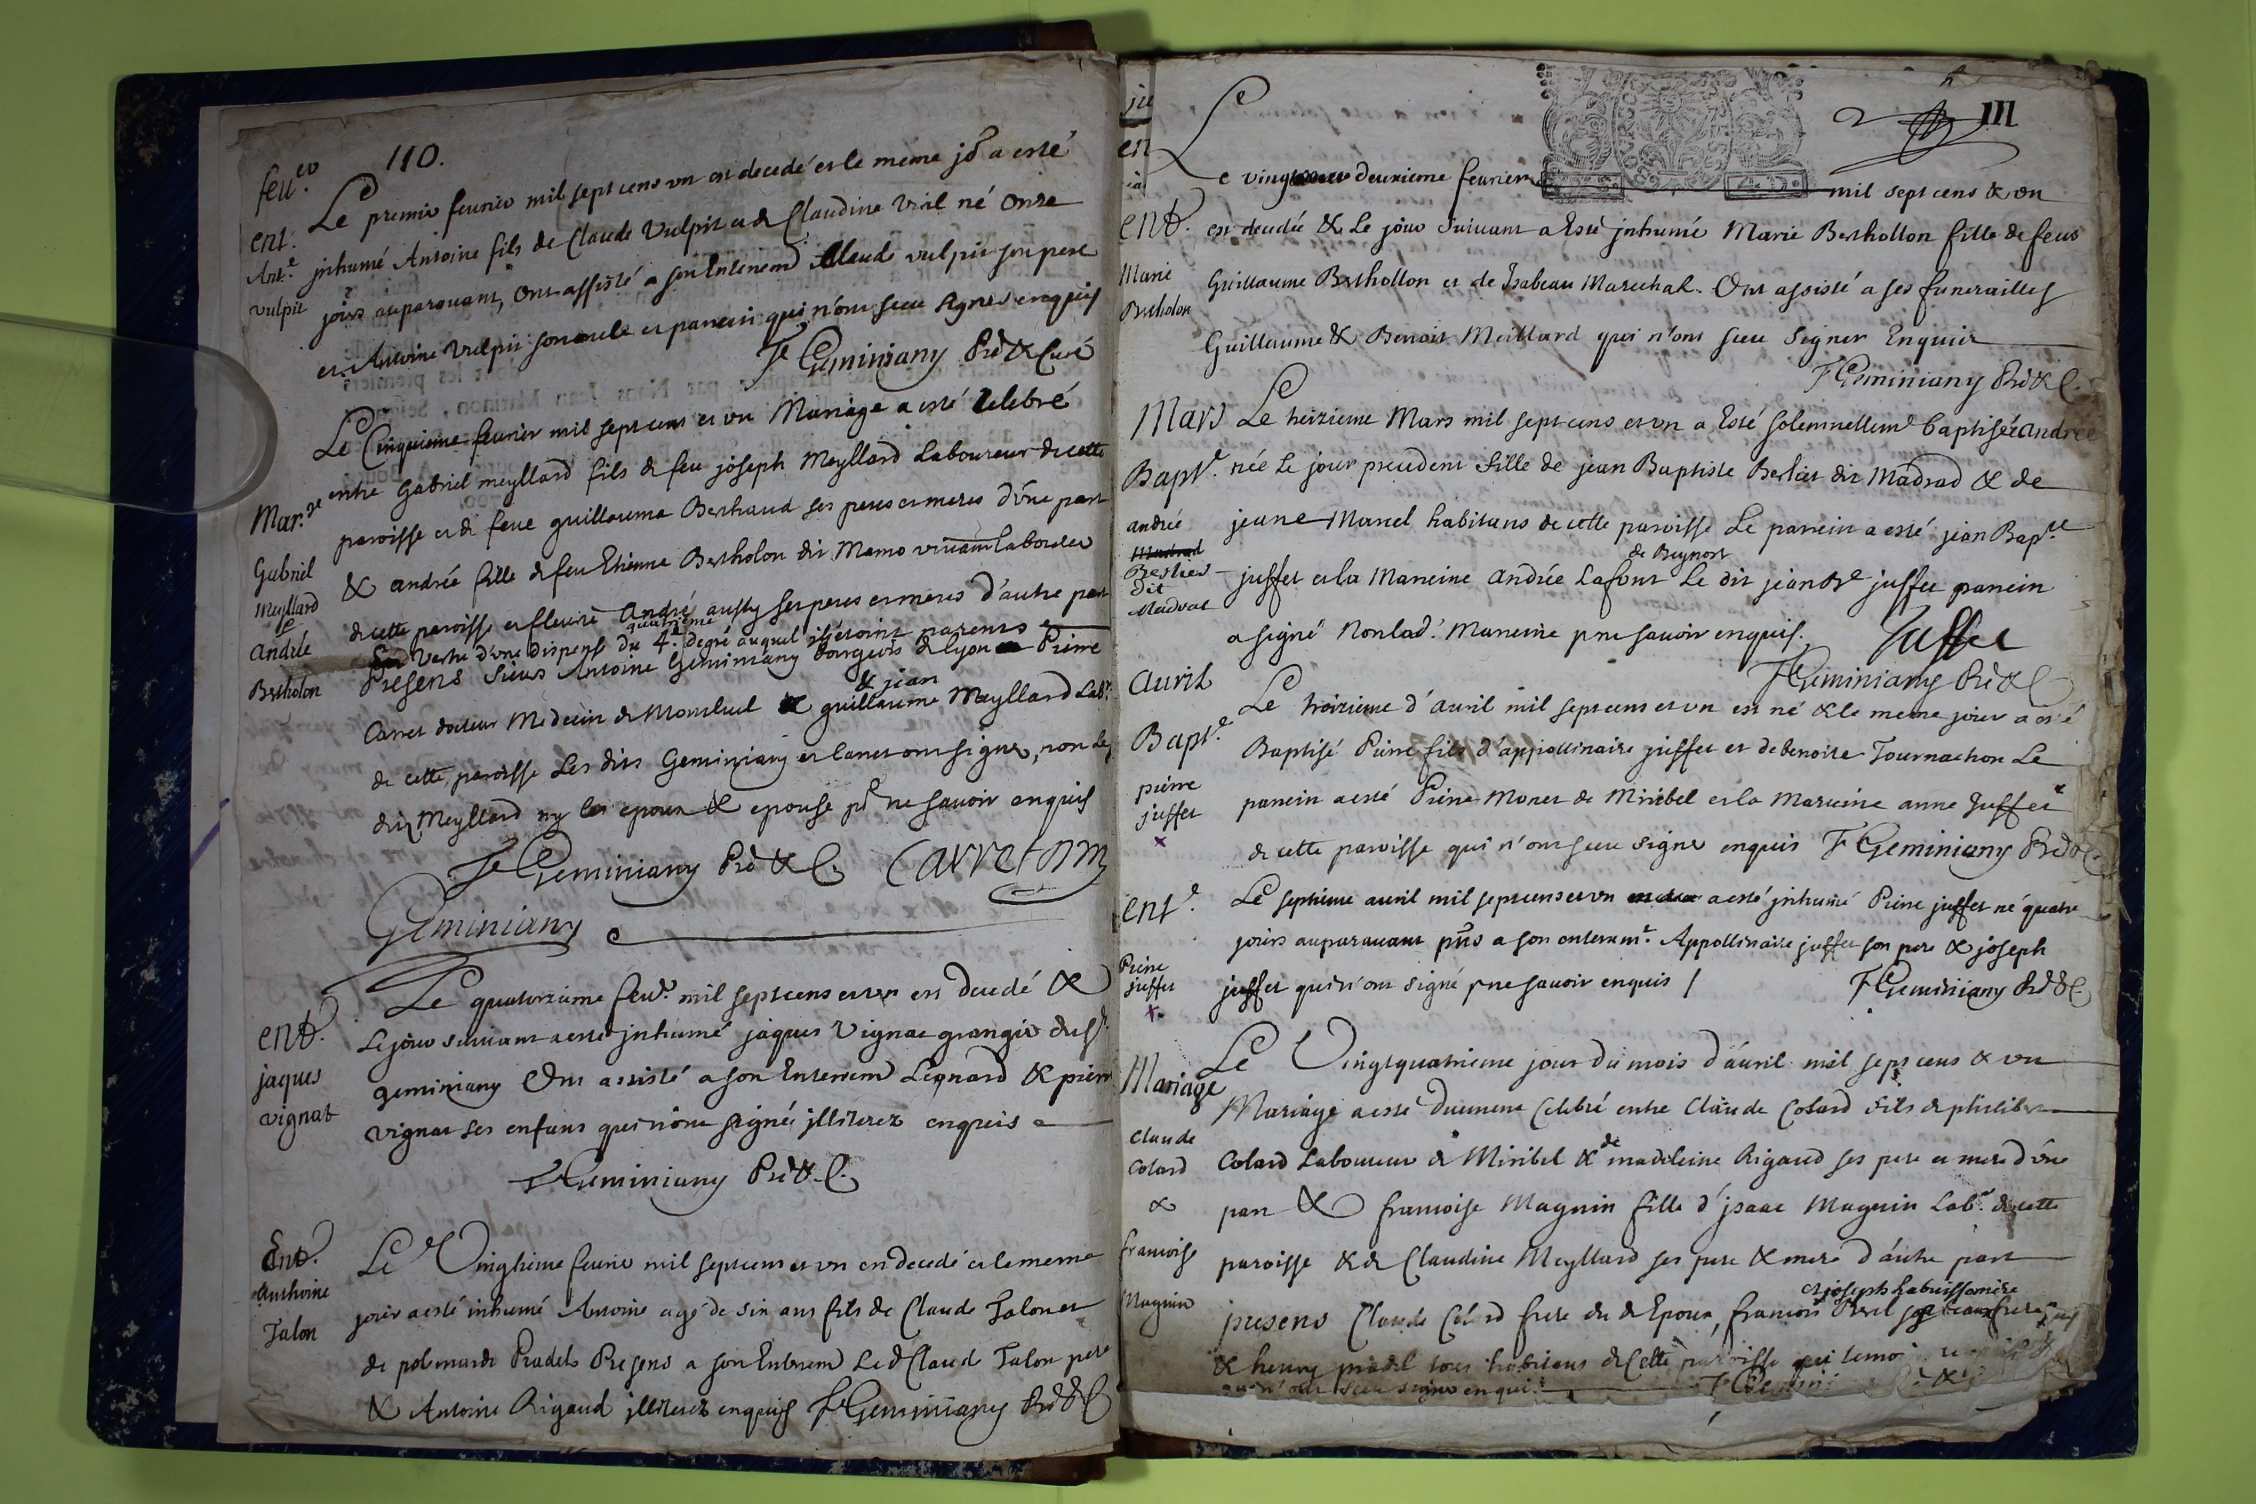 110.
feu.er
Le premier feurier mil sept cens vn est decedé et le meme jo.r a esté
ent.
Ant.e
vulpit
jnhumé Antoine fils de Claude Vulpit et de Claudine Vial né onze
jours auparauant, ont assisté a son Enterrem.t Claude vulpit son pere
et Antoine Vulpit son oncle et parrein qui n'ont sceu signer enquis
F Geminiany Prê & Curé
Le Cinquieme feurier mil sept cens et vn Mariage a esté celebré
entre Gabriel meyllard fils de feu joseph Meyllard Laboureur de cette
Mar.ge
Gabriel
Meyllard
&
andrée
Bertholon
paroisse et de feue guillauma Berthaud ses peres et meres d'vne part
& andrée fille de feu Etienne Bertholon dit Momo viuant laboureur
de cette paroisse et fleurie André aussy ses peres et meres d'autre part
En Vertu d'vne dispense du 4.e quatrieme degré auquel ils étoint parents
Presens Sieurs Antoine Geminiany bourgeois de Lyon Pierre
Carret docteur Medecin de Monluel & guillaume & jean Meyllard Lab.rs
de cette paroisse Les dits Geminiany et Carret ont signé, non les
dits Meyllard ny les epoux & epouse p.r ne sauoir enquis
F Geminiany Prê & C. Carret DM
Geminiany
Le quatorzieme feu.r mil sept cens et vn est decedé &
Le jour suiuant a esté jnhumé jaques Vignat grangier du S.r
ent.
jaques
vignat
geminiany Ont assisté a son Enterrem.t Leonard & pierre
vignat ses enfans qui n'ont signé jlliterez enquis
F Geminiany Prê & C.
Ent.
Anthoine
Talon
Le Vingtieme feurier mil sept cens et vn est decedé et le meme
jour a esté inhumé Antoine agé de six ans fils de Claude Talon et
de Pradel Presens a son Enterrem.t Le d. Claud Talon pere
& Antoine Rigaud jlliterez enquis F Geminiany Prê & C
111
Le vingt deuxieme feurier mil sept cens & vn
ent.
Marie
Bertholon
est decedée & Le jour suiuant a Esté jnhumé Marie Berthollon fille de feus
Guillaume Berthollon et de Isabeau Marechal. Ont assisté a ses funerailles
Guillaume & Benoit Meillard qui n'ont sceu signer Enquis
F Geminiany Prê & C.
Mars
Le treizieme Mars mil sept cens et vn a Esté solemnellem.t baptisée andrée
Bapt.e
andrée
Berlies
dit
Madrat
née Le jour precedent fille de jean Baptiste Berliet dit Madrad & de
jeane Marcel habitans de cette paroisse Le parrein a esté jean Bap.te
juffet et la Marreine andrée Lafont de Beynost Le dit jean B.te juffet parrein
a signé Non lad. Marreine p.r ne sauoir enquis. Juffet
F Geminiany Prê & C
auril
Bapt.e
pierre
juffet
Le troizieme d'auril mil sept cens et vn est né & le meme jour a esté
Baptisé Pierre fils d'appollinaire juffet et de benoite Tournachon Le
parrein a esté Pierre Monet de Miribel et la Marreine anne juffet
de cette paroisse qui n'ont sceu signer enquis F Geminiany Prê & C.
ent.
Pierre
juffet
Le septieme auril mil sept cens et vn a esté jnhumé Pierre juffet né quatre
jours auparauant pñs a son enterrem.t Appollinaire juffet son pere & joseph
juffet qui n'ont signé p.r ne sauoir enquis / F Geminiany Prê & C.
Mariage
Claude
Colard
&
francoise
Magnin
Le Vingt quatrieme jour du mois d'auril mil sept cens & vn
Mariage a esté Duement Celebré entre Claude Colard fils de philibert
Colard Laboureur de Miribel & de madeleine Rigaud ses pere et mere d'vne
part & francoise Magnin fille d'jsaac Magnin Lab.r de cette
paroisse & de Claudine Meyllard ses pere & mere d'autre part
presens Claude Colard frere du d. Epoux, francois et joseph Labuissonniere
& henry pradel tous habitans de Cette paroisse
qui n'ont sceu signer enquis